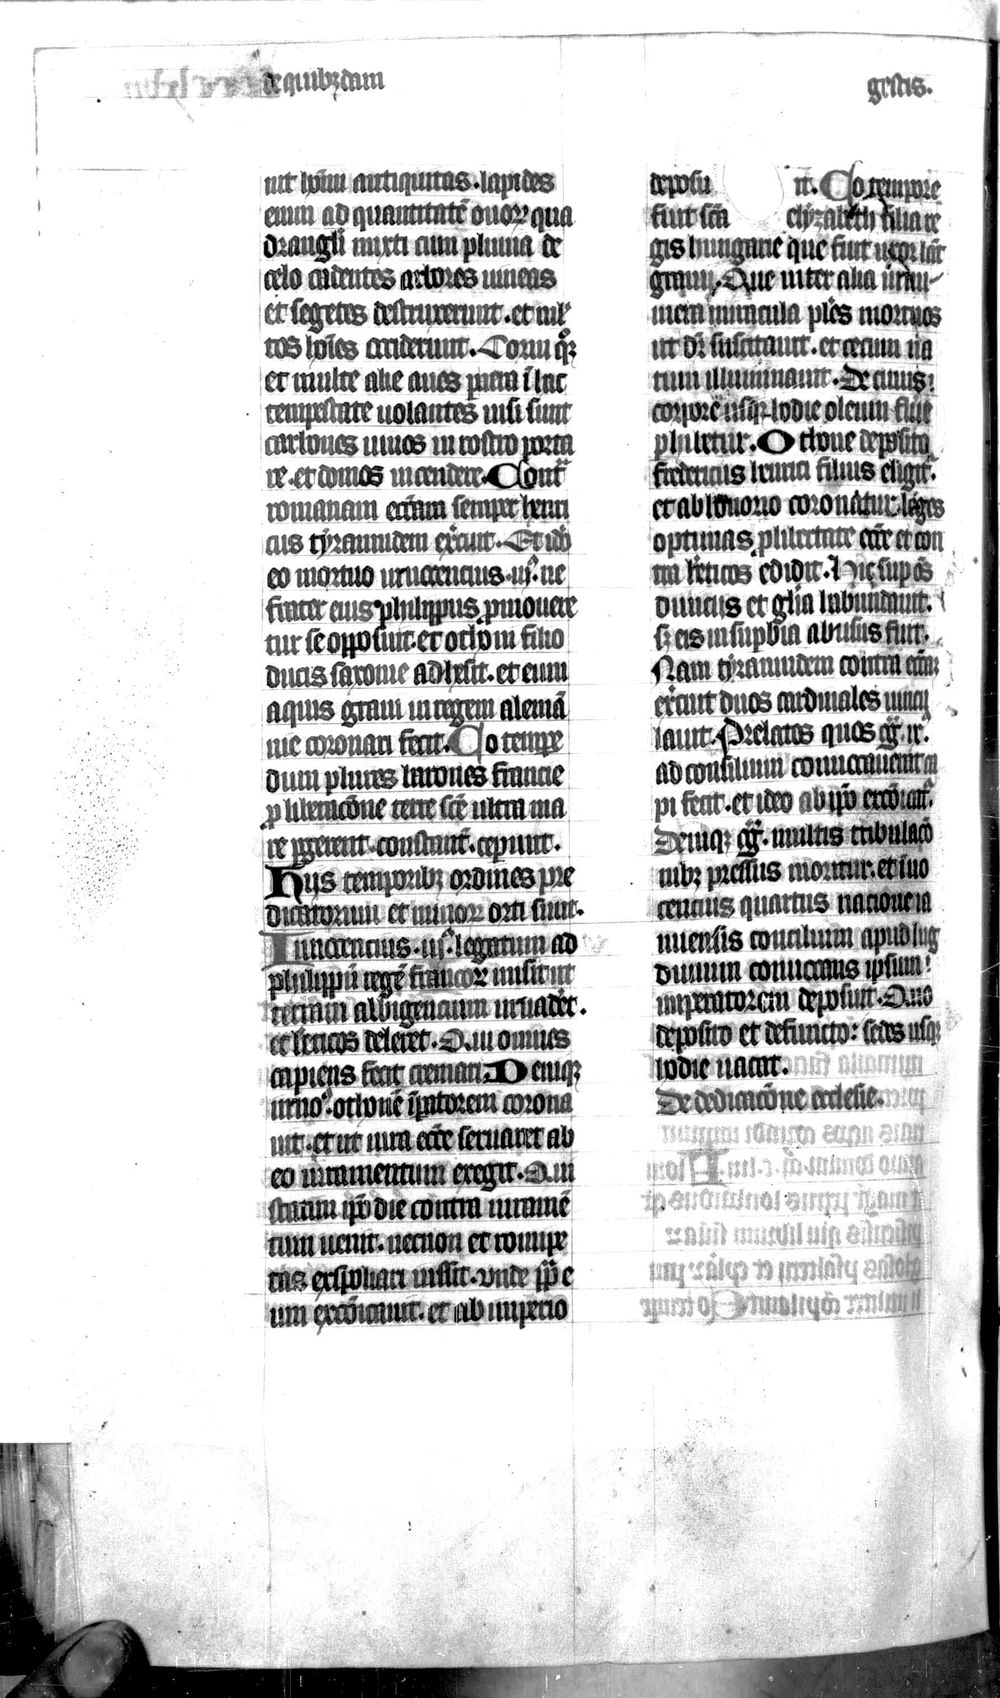 de quibꝫdam gestis.
uit hoīm antiquitas. lapides
enim ad quantitatē ouoꝝ qua
drangli mixti cum pluuia de
celo cadentes arbores uineas
et segetes destruxerunt. et ml̄
tos hoīes occiderunt. Corui qͦꝫ
et multe alie aues p aera ī hac
tempestate uolantes uisi sunt
carbones uiuos in rostro porta
re. et domos incendere. Contᷓ
romanam eccām semper henri
cus tyrannidem ex̄cuit. Et iō
eo mortuo innocencius. iiͥ. ne
frater eius philippus ꝓmouere
tur se opposuit. et othoni filio
ducis saxonie adhesit. et eum
aquis grani in regem alemā
nie coronari fecit. Eo tempe
dum plures barones francie
ꝓ liberacōne terre scē ultra ma
re ꝑgerent. constant̄. ceperunt.
Hijs temporibꝫ ordines pre
dicatorum et minoꝝ orti sunt.
Innocencius. iiͥ. legatum ad
philippū regē francoꝝ misit ut
terram albigencium inuader̄t.
et hēticos deleret. Qui omnes
capiens fecit cremari. Deniqꝫ
inno. othonē īpatorem corona
uit. et ut iura eccē seruaret ab
eo iuramentum exegit. Qui
statim ipō die contra iuramē
tum uenit. necnon et romipe
tas exspoliari iussit. unde pp̄ e
um excōicauit. et ab imperio
deposu it. Eo tempore
fuit scā elyzabeth filia re
gis hungarie que fuit uxor lāt
grauij. Que inter alia innu
mera miracula pl̄es mortuos
ut dr̄ suscitauit. et cecum na
tum illuminauit. De cuius
corpore usqꝫ hodie oleum flue
phibetur. Othone deposito
fredericus henrici filius eligit̄.
et ab honorio coronatur. leges
optimas ꝓ libertate eccē et con
tra hēticos edidit. Hic sup oēs
diuicijs et glīa habundauit.
sꝫ eis in supbia abusus fuit.
Nam tyrannidem contra eccāꝫ
ex̄cuit duos cardinales uincu
lauit. Prelatos quos gͬg. ix.
ad consilium conuocauerat ca
pi fecit. et ideo ab ipō excōicatᷓ.
Deniqꝫ gͬg. multis tribulacō
nibꝫ pressus moritur. et īno
cencius quartus nacione ia
nuensis concilium apud lug
dunum conuocans ipsum
imperatorem deposuit. Quo
deposito et defuncto: sedes usqꝫ
hodie uacat.
De dedicacōne ecclesie.